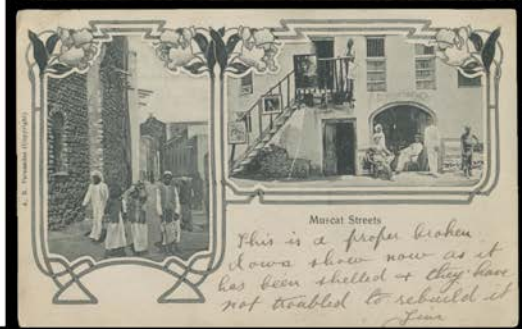 A. R. Fernandez (Copyright)
Muscat Streets
This is a proper broken
down show now as it
has been shelled & they have
not troubled to rebuild it